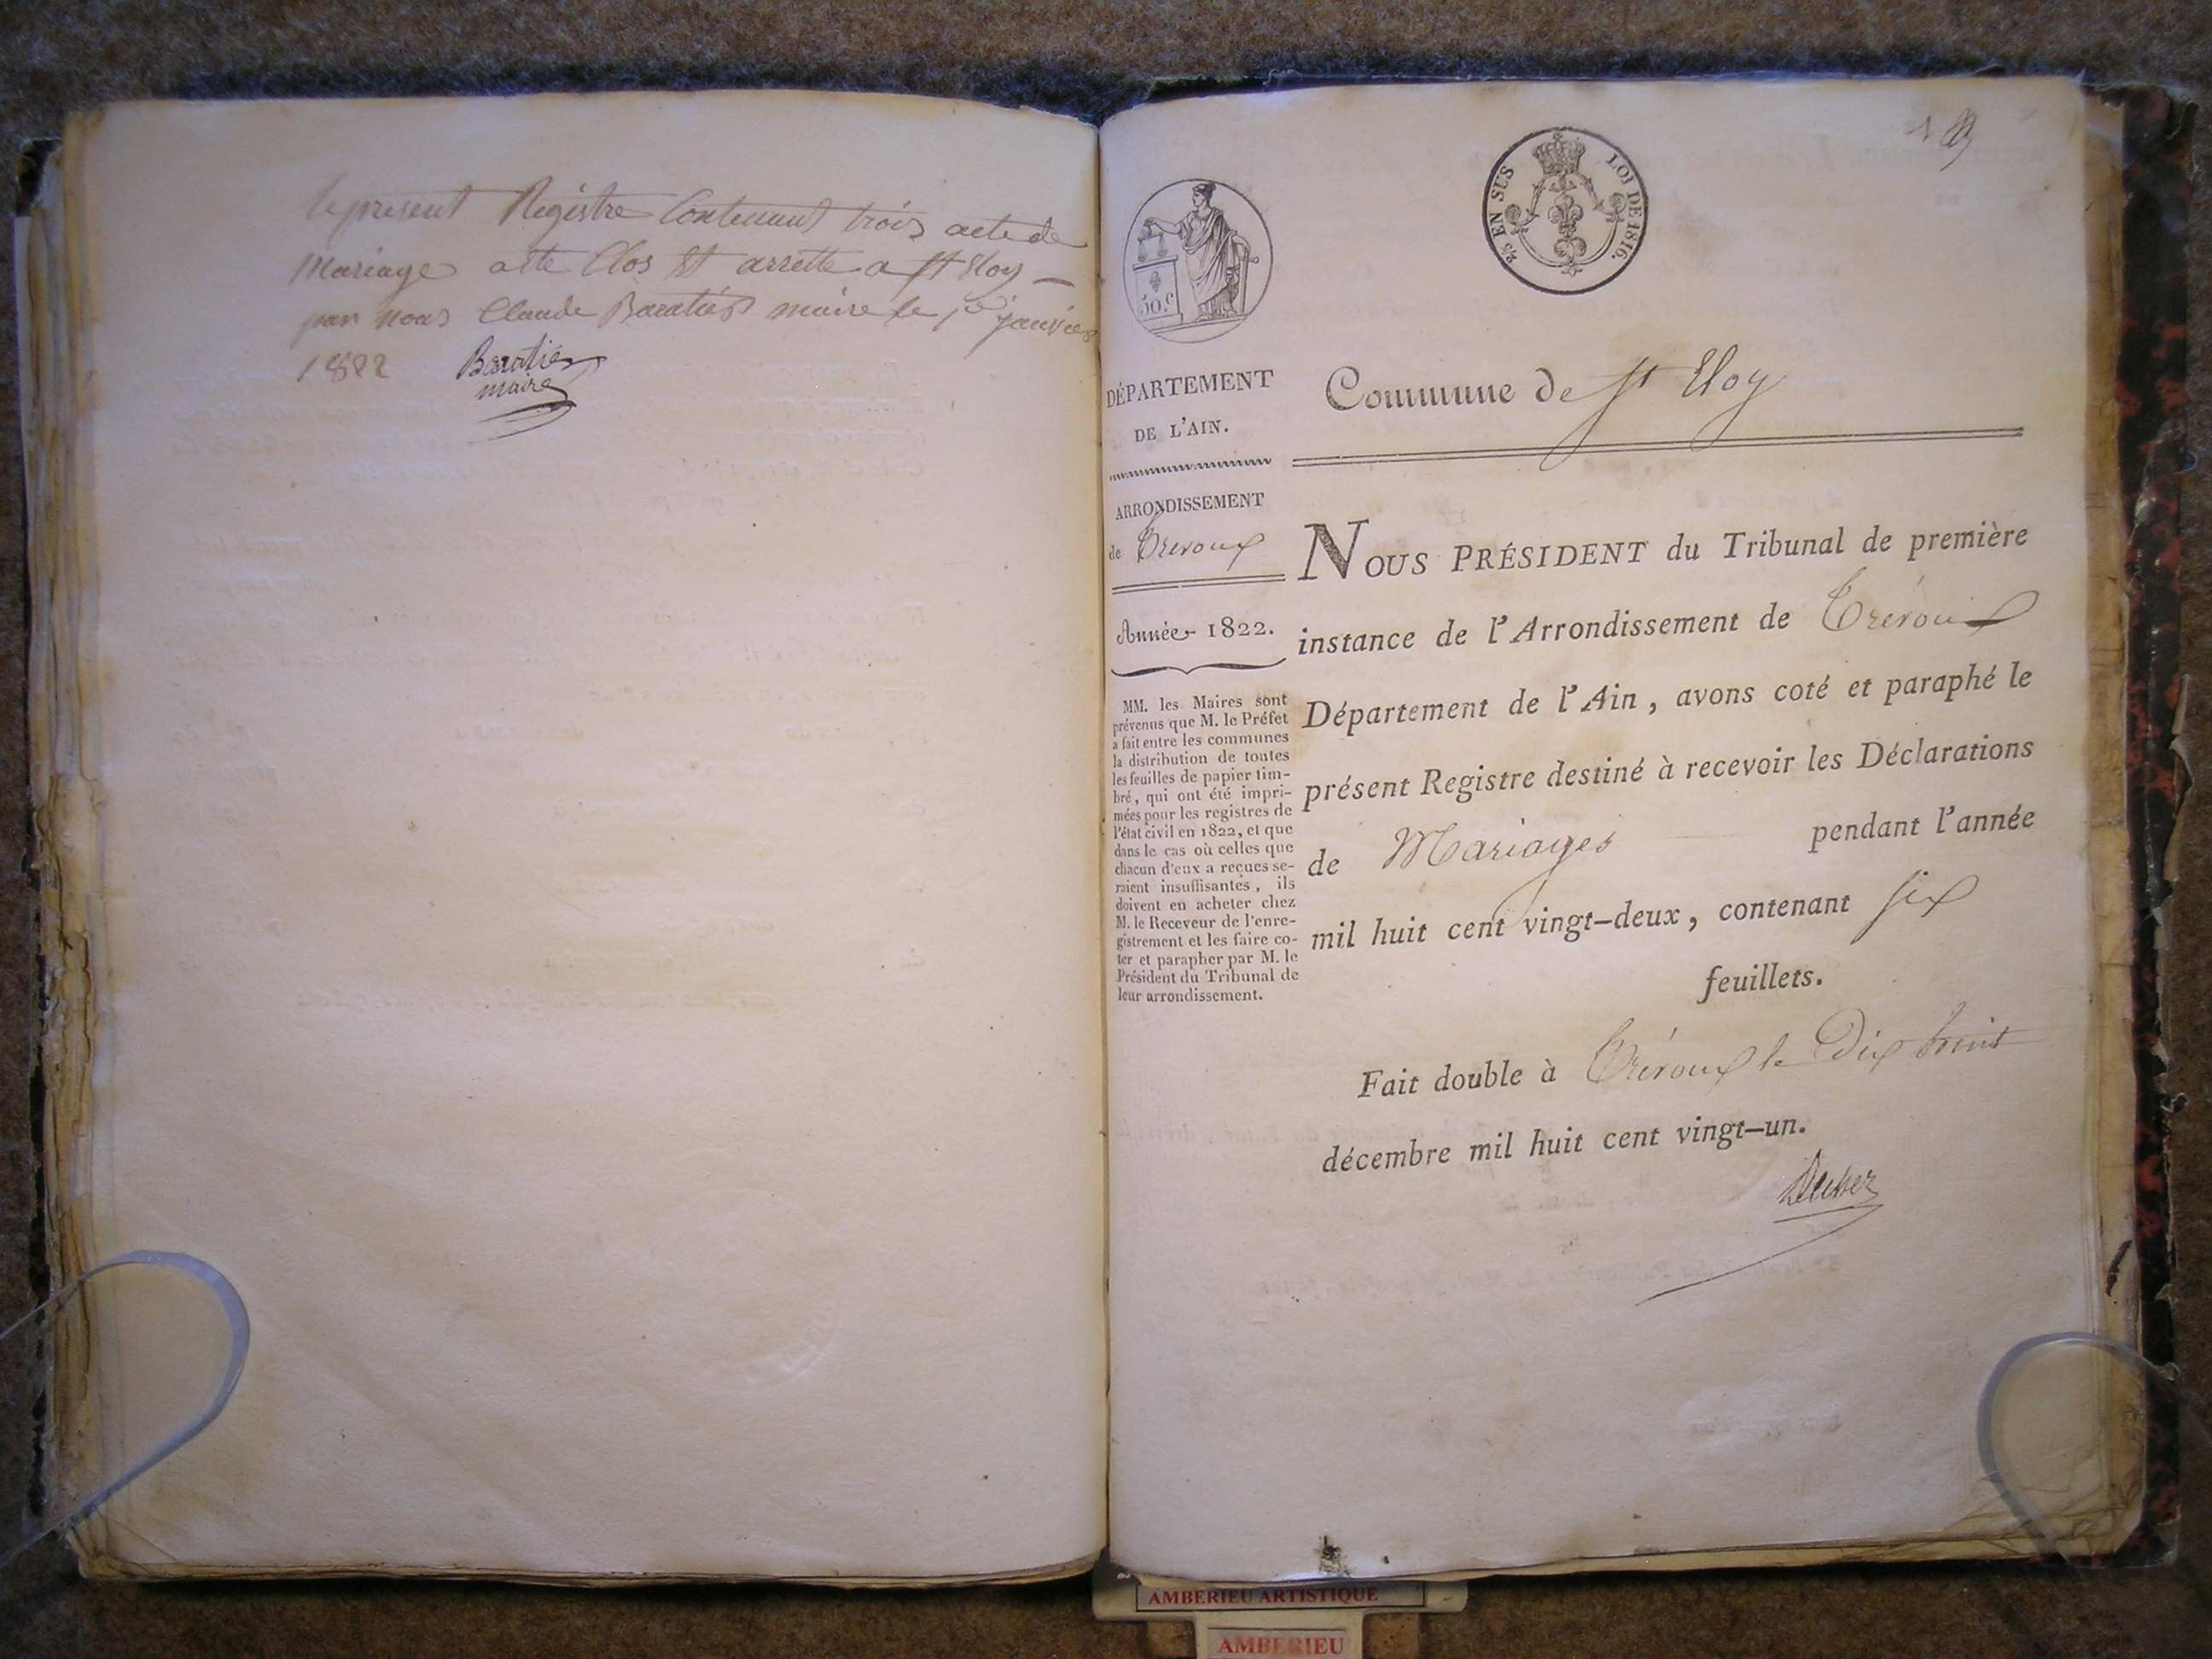 le present Registre Contenant trois acte de
Mariage a ete Clos Et arrette a St Eloy —
par nous Claude Baratier maire le 1er janvier
1822 Baratier
maire
50.c
25 EN SUS LOI DE 1816.
DÉPARTEMENT
DE L'AIN.
ARRONDISSEMENT
de Trevoux
Année 1822.
MM. les Maires sont
prévenus que M. le Préfet
a fait entre les communes
la distribution de toutes
les feuilles de papier tim-
bré, qui ont été impri-
mées pour les registres de
l'état civil en 1822, et que
dans le cas où celles que
chacun d'eux a reçues se-
raient insuffisantes, ils
doivent en acheter chez
M. le Receveur de l'enre-
gistrement et les faire co-
ter et parapher par M. le
Président du Tribunal de
leur arrondissement.
Commune de St Eloy
NOUS PRÉSIDENT du Tribunal de première
instance de l'Arrondissement de Trévoux
Département de l'Ain, avons coté et paraphé le
présent Registre destiné à recevoir les Déclarations
de Mariages pendant l'année
mil huit cent vingt-deux, contenant six
feuillets.
Fait double à Trévoux le Dix huit
décembre mil huit cent vingt-un.
AMBERIEU ARTISTIQUE
AMBERIEU